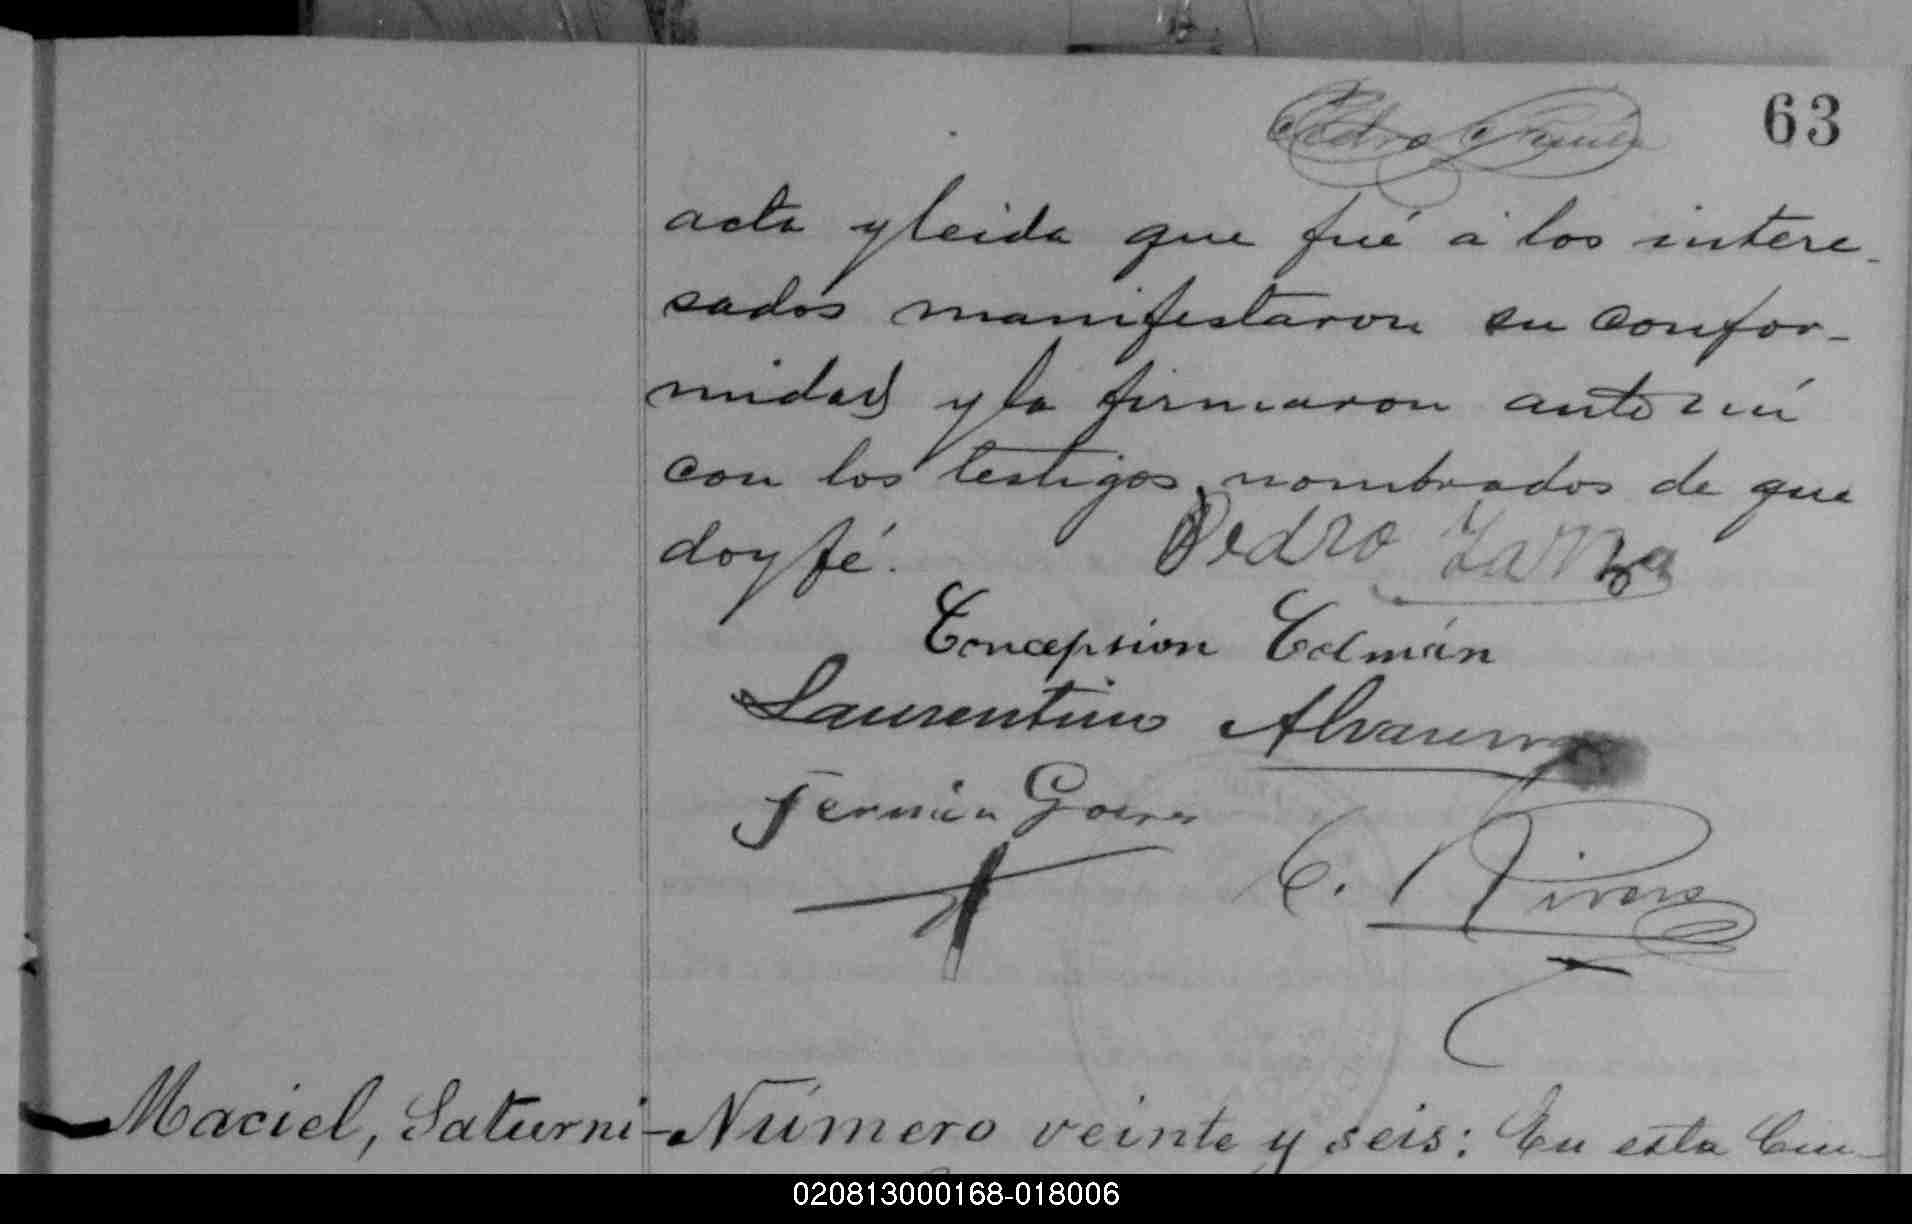 63
Pedro
acta y leida que fué á los intere-
sados manifestaron su confor-
midad y la firmaron ante mí
con los testigos nombrados de que
doy fé. Pedro
Concepsion Colmán
Laurentino Alvarenga
Fermín
C. Rivero
Maciel, Saturni- Número veinte y seis: En esta Ciu-
020813000168-018006